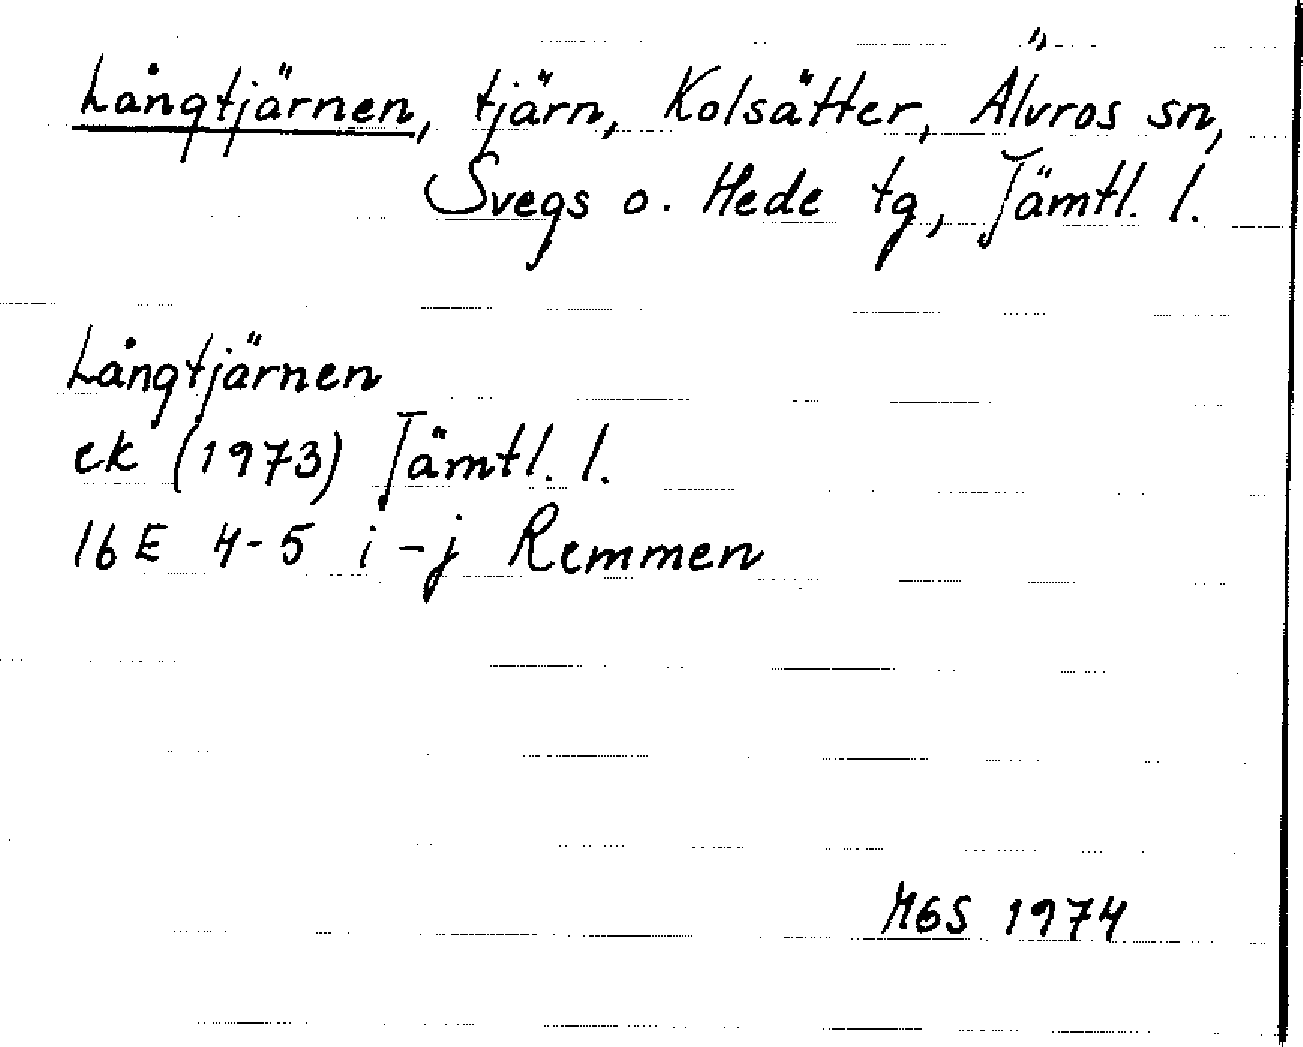 Långtjärnen, tjärn, Kolsätter, Älvros sn,
Svegs o. Hede tg, Jämtl. l.
Långtjärnen
ek (1973) Jämtl. l.
16E 4-5 i-j Remmen
MGS 1974